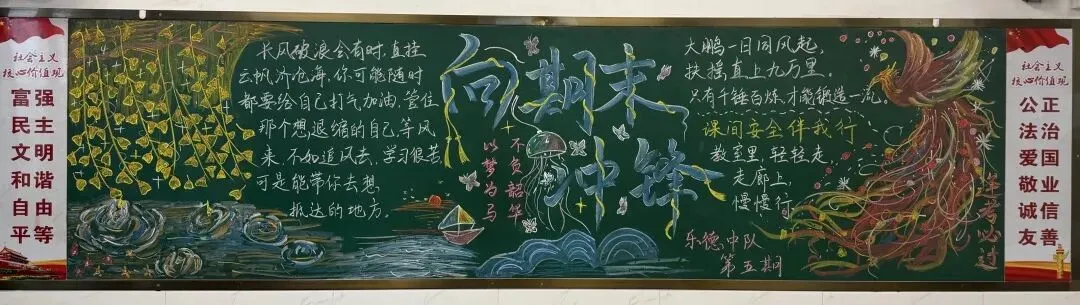 社会主义
核心价值观
富强
民主
文明
和谐
自由
平等
长风破浪会有时,直挂
云帆济沧海,你可能随时
都要给自己打气加油,管住
那个想退缩的自己,等风
来,不如追风去,学习很苦
可是能带你去想
抵达的地方。
向期末
冲锋
以梦为马
不负韶华
大鹏一日同风起,
扶摇直上九万里。
只有千锤百炼,才能锻造一流。
课间安全伴我行
教室里,轻轻走,
走廊上,
慢慢行
乐德中队
第五期
逢考必过
社会主义
核心价值观
公正
法治
爱国
敬业
诚信
友善